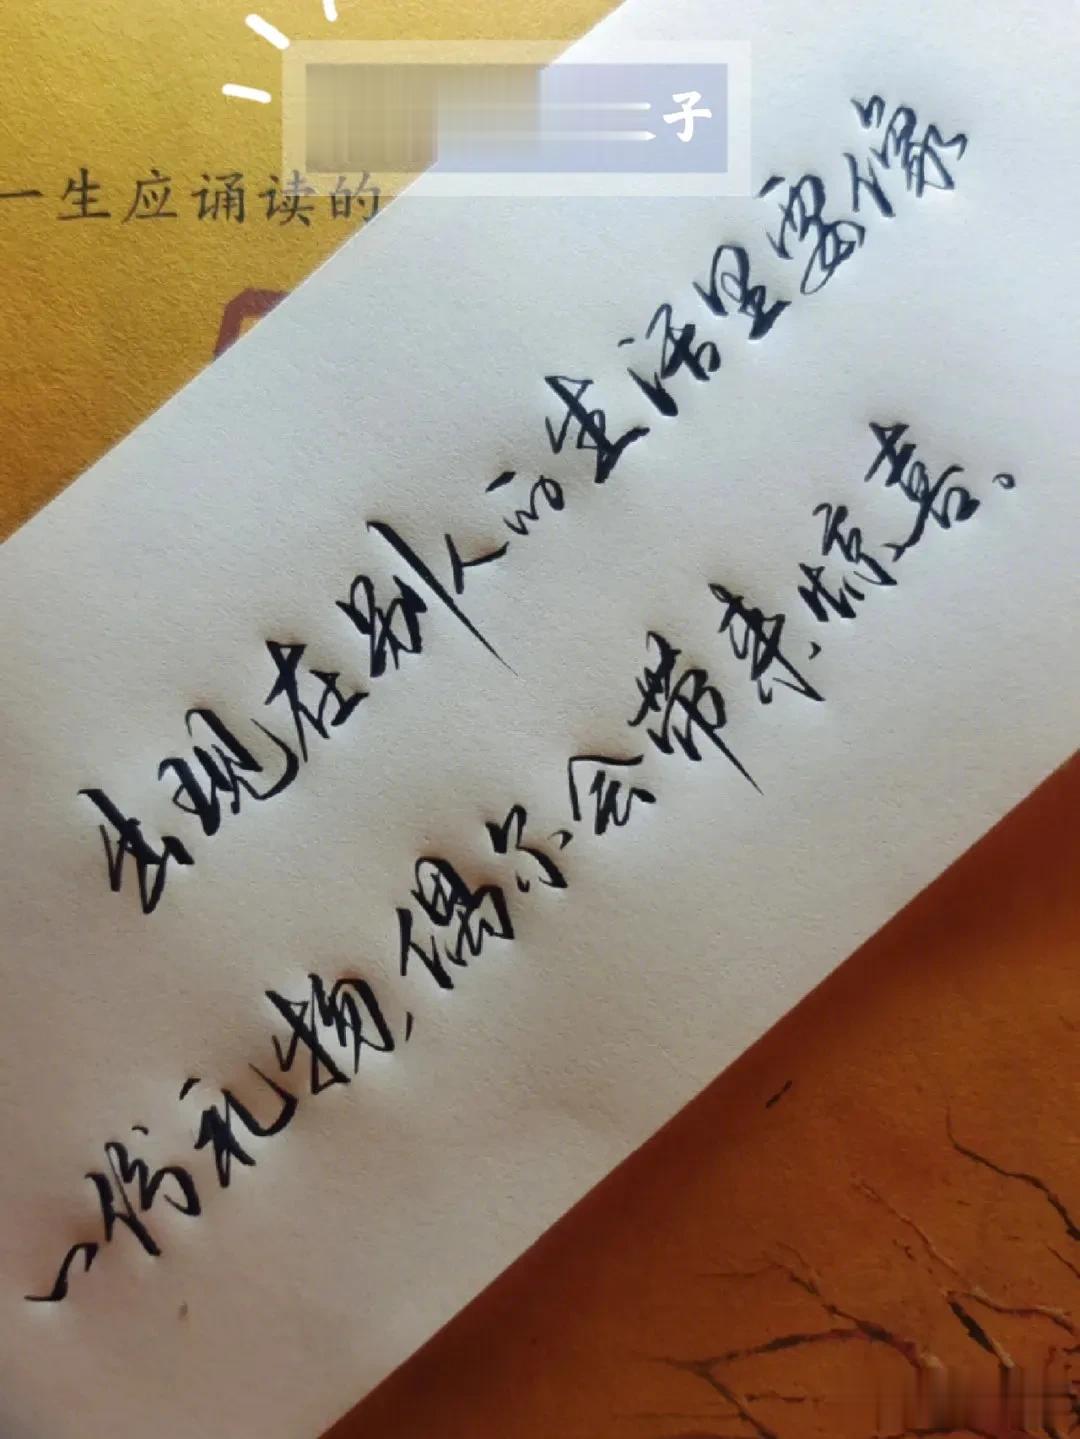 子
一生应诵读的
出现在别人的生活里要像
一份礼物,偶尔会带来惊喜。